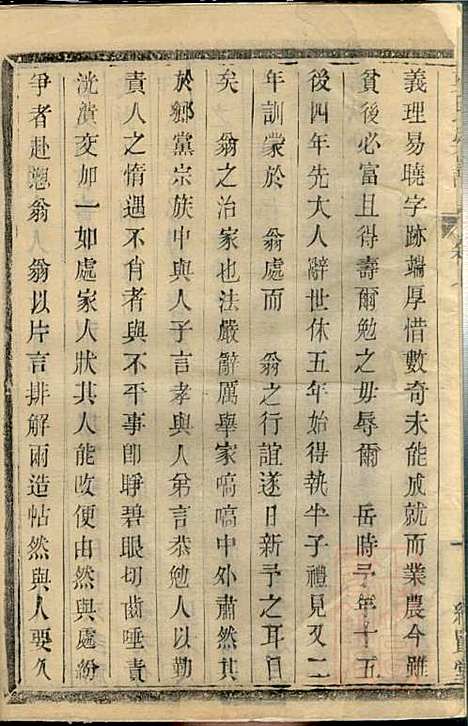 義理易曉字跡端厚惜數奇未能成就而業農今雖
貧後必富且得壽爾勉之毋辱爾 岳時予年十五
後四年先大人辭世休五年始得執半子禮見又二
年訓蒙於 翁處而 翁之行誼遂日新予之耳目
矣 翁之治家也法嚴辭厲舉家嗃嗃中外肅然其
於鄉黨宗族中與人子言孝與人弟言恭勉人以勤
責人之惰遇不肖者與不平事即睜碧眼切齒唾責
洸潰交加一如處家人狀其人能改便由然與處紛
爭者赴愬翁人翁以片言排解兩造帖然與人要久